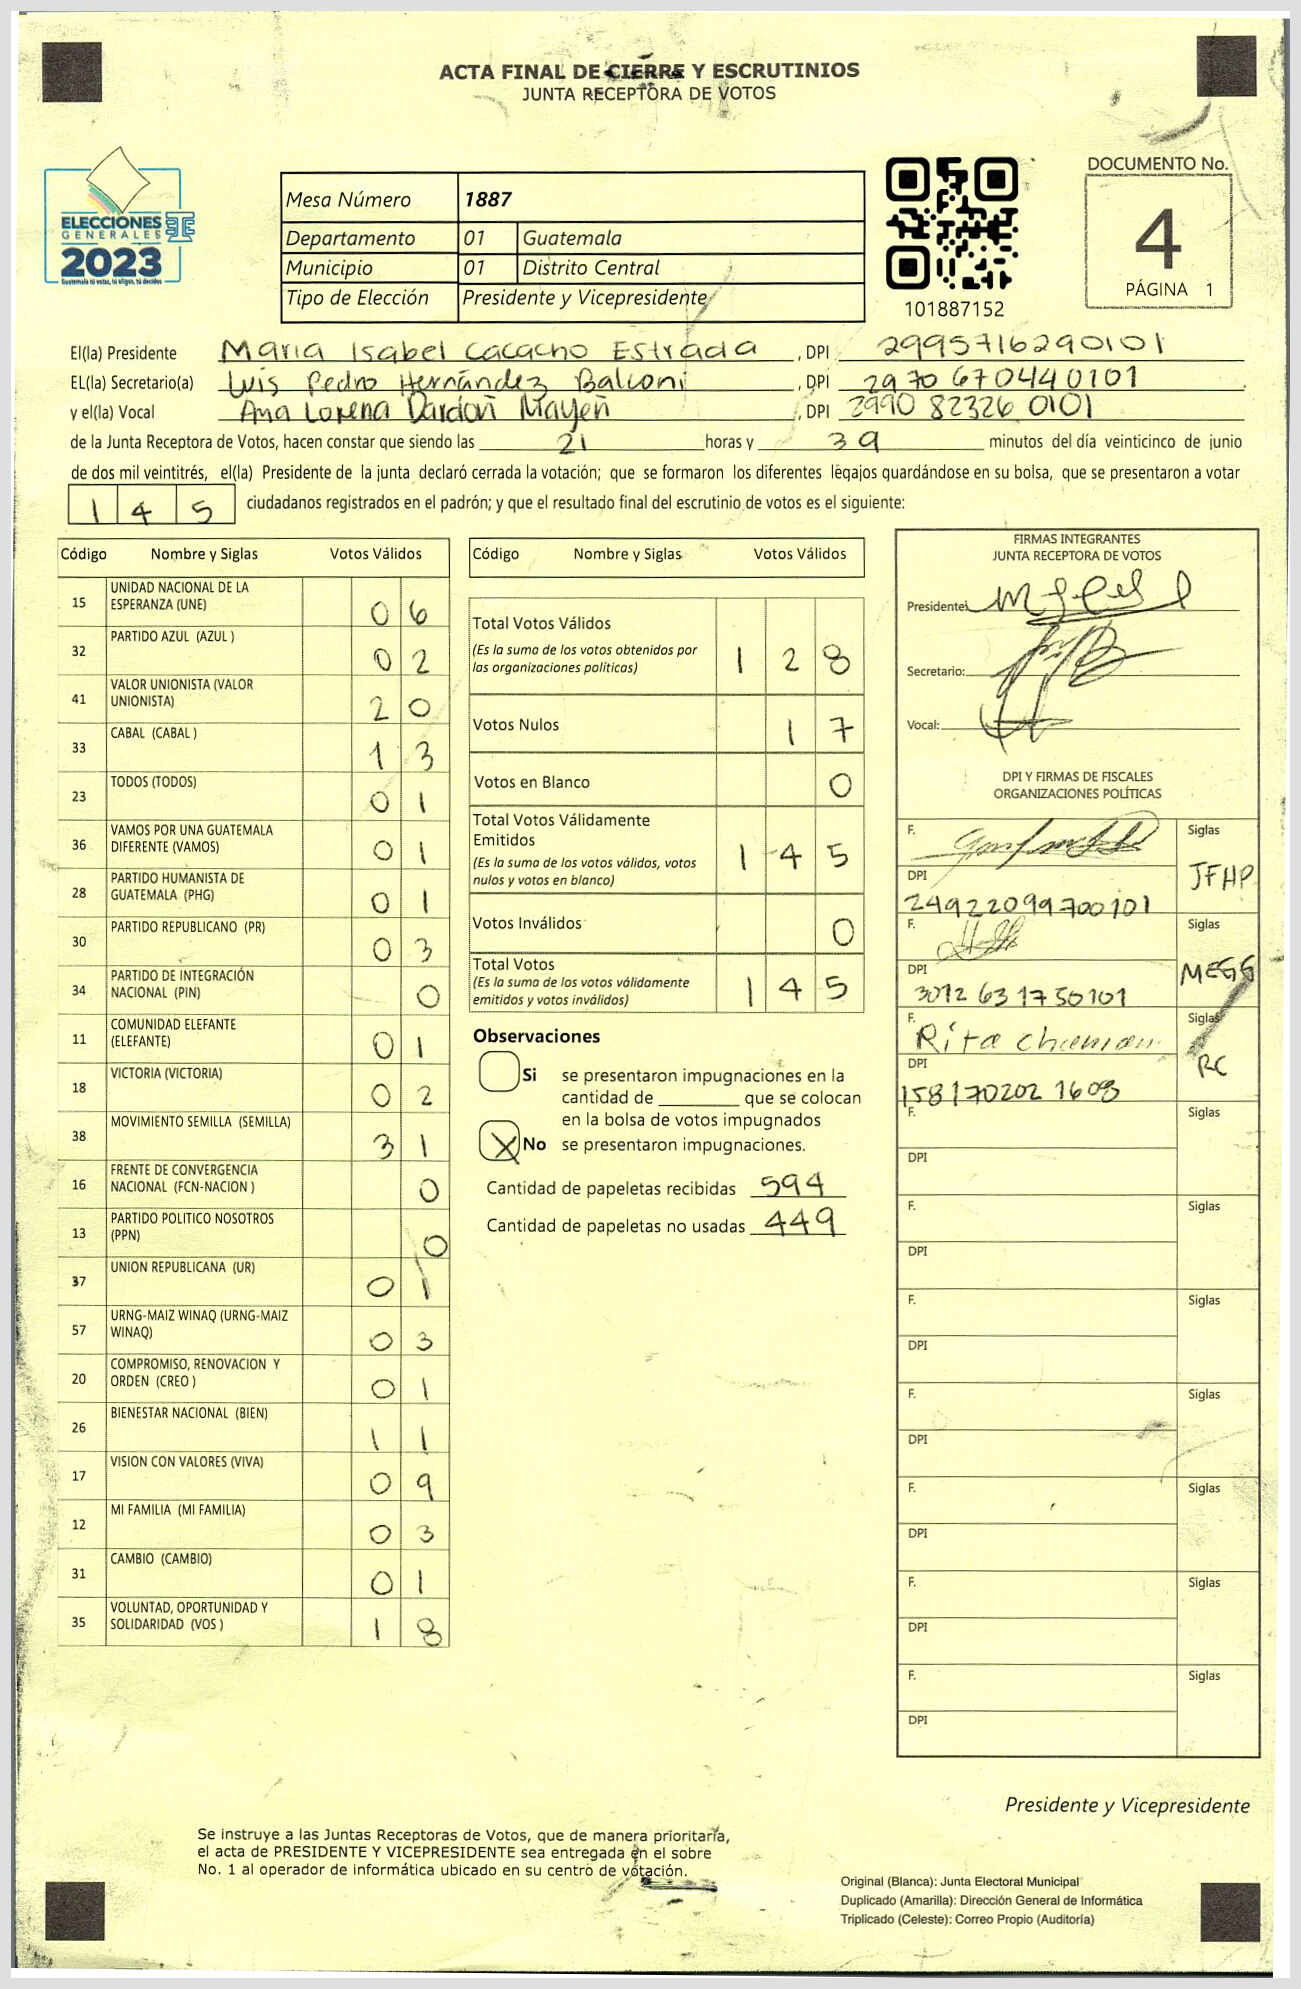 ACTA FINAL DE CIERRE Y ESCRUTINIOS
JUNTA RECEPTORA DE VOTOS
ELECCIONES
GENERALES
2023
Guatemala tú votas, tú eliges, tú decides
Mesa Número 1887
Departamento 01 Guatemala
Municipio 01 Distrito Central
Tipo de Elección Presidente y Vicepresidente
101887152
DOCUMENTO No.
4
PÁGINA 1
El(la) Presidente Maria Isabel Cacacho Estrada , DPI 2995716290101
EL(la) Secretario(a) Luis Pedro Hernández Balconi , DPI 2970670440101
y el(la) Vocal Ana Lorena Dardón Mayén , DPI 2990 82326 0101
de la Junta Receptora de Votos, hacen constar que siendo las 21 horas y 39 minutos del día veinticinco de junio
de dos mil veintitrés, el(la) Presidente de la junta declaró cerrada la votación; que se formaron los diferentes legajos guardándose en su bolsa, que se presentaron a votar
145 ciudadanos registrados en el padrón; y que el resultado final del escrutinio de votos es el siguiente:
Código Nombre y Siglas Votos Válidos
15 UNIDAD NACIONAL DE LA ESPERANZA (UNE) 06
32 PARTIDO AZUL (AZUL ) 02
41 VALOR UNIONISTA (VALOR UNIONISTA) 20
33 CABAL (CABAL ) 13
23 TODOS (TODOS) 01
36 VAMOS POR UNA GUATEMALA DIFERENTE (VAMOS) 01
28 PARTIDO HUMANISTA DE GUATEMALA (PHG) 01
30 PARTIDO REPUBLICANO (PR) 03
34 PARTIDO DE INTEGRACIÓN NACIONAL (PIN) 0
11 COMUNIDAD ELEFANTE (ELEFANTE) 01
18 VICTORIA (VICTORIA) 02
38 MOVIMIENTO SEMILLA (SEMILLA) 31
16 FRENTE DE CONVERGENCIA NACIONAL (FCN-NACION ) 0
13 PARTIDO POLITICO NOSOTROS (PPN) 0
37 UNION REPUBLICANA (UR) 01
57 URNG-MAIZ WINAQ (URNG-MAIZ WINAQ) 03
20 COMPROMISO, RENOVACION Y ORDEN (CREO ) 01
26 BIENESTAR NACIONAL (BIEN) 11
17 VISION CON VALORES (VIVA) 09
12 MI FAMILIA (MI FAMILIA) 03
31 CAMBIO (CAMBIO) 01
35 VOLUNTAD, OPORTUNIDAD Y SOLIDARIDAD (VOS ) 18
Código Nombre y Siglas Votos Válidos
Total Votos Válidos 128
(Es la suma de los votos obtenidos por
las organizaciones politicas)
Votos Nulos 17
Votos en Blanco 0
Total Votos Válidamente
Emitidos 145
(Es la suma de los votos válidos, votos
nulos y votos en blanco)
Votos Inválidos 0
Total Votos 145
(Es la suma de los votos válidamente
emitidos y votos inválidos)
Observaciones
Si se presentaron impugnaciones en la
cantidad de ________ que se colocan
en la bolsa de votos impugnados
X No se presentaron impugnaciones.
Cantidad de papeletas recibidas 594
Cantidad de papeletas no usadas 449
FIRMAS INTEGRANTES
JUNTA RECEPTORA DE VOTOS
Presidente:
Secretario:
Vocal:
DPI Y FIRMAS DE FISCALES
ORGANIZACIONES POLÍTICAS
F. Siglas
JFHP
DPI
2492209970 0101
F. Siglas
MEGG
DPI
3012 63 1750101
F. Rita Siglas
RC
DPI
158170202 1608
F. Siglas
DPI
F. Siglas
DPI
F. Siglas
DPI
F. Siglas
DPI
F. Siglas
DPI
F. Siglas
DPI
F. Siglas
DPI
Presidente y Vicepresidente
Se instruye a las Juntas Receptoras de Votos, que de manera prioritaria,
el acta de PRESIDENTE Y VICEPRESIDENTE sea entregada en el sobre
No. 1 al operador de informática ubicado en su centro de votación.
Original (Blanca): Junta Electoral Municipal
Duplicado (Amarilla): Dirección General de Informática
Triplicado (Celeste): Correo Propio (Auditoría)